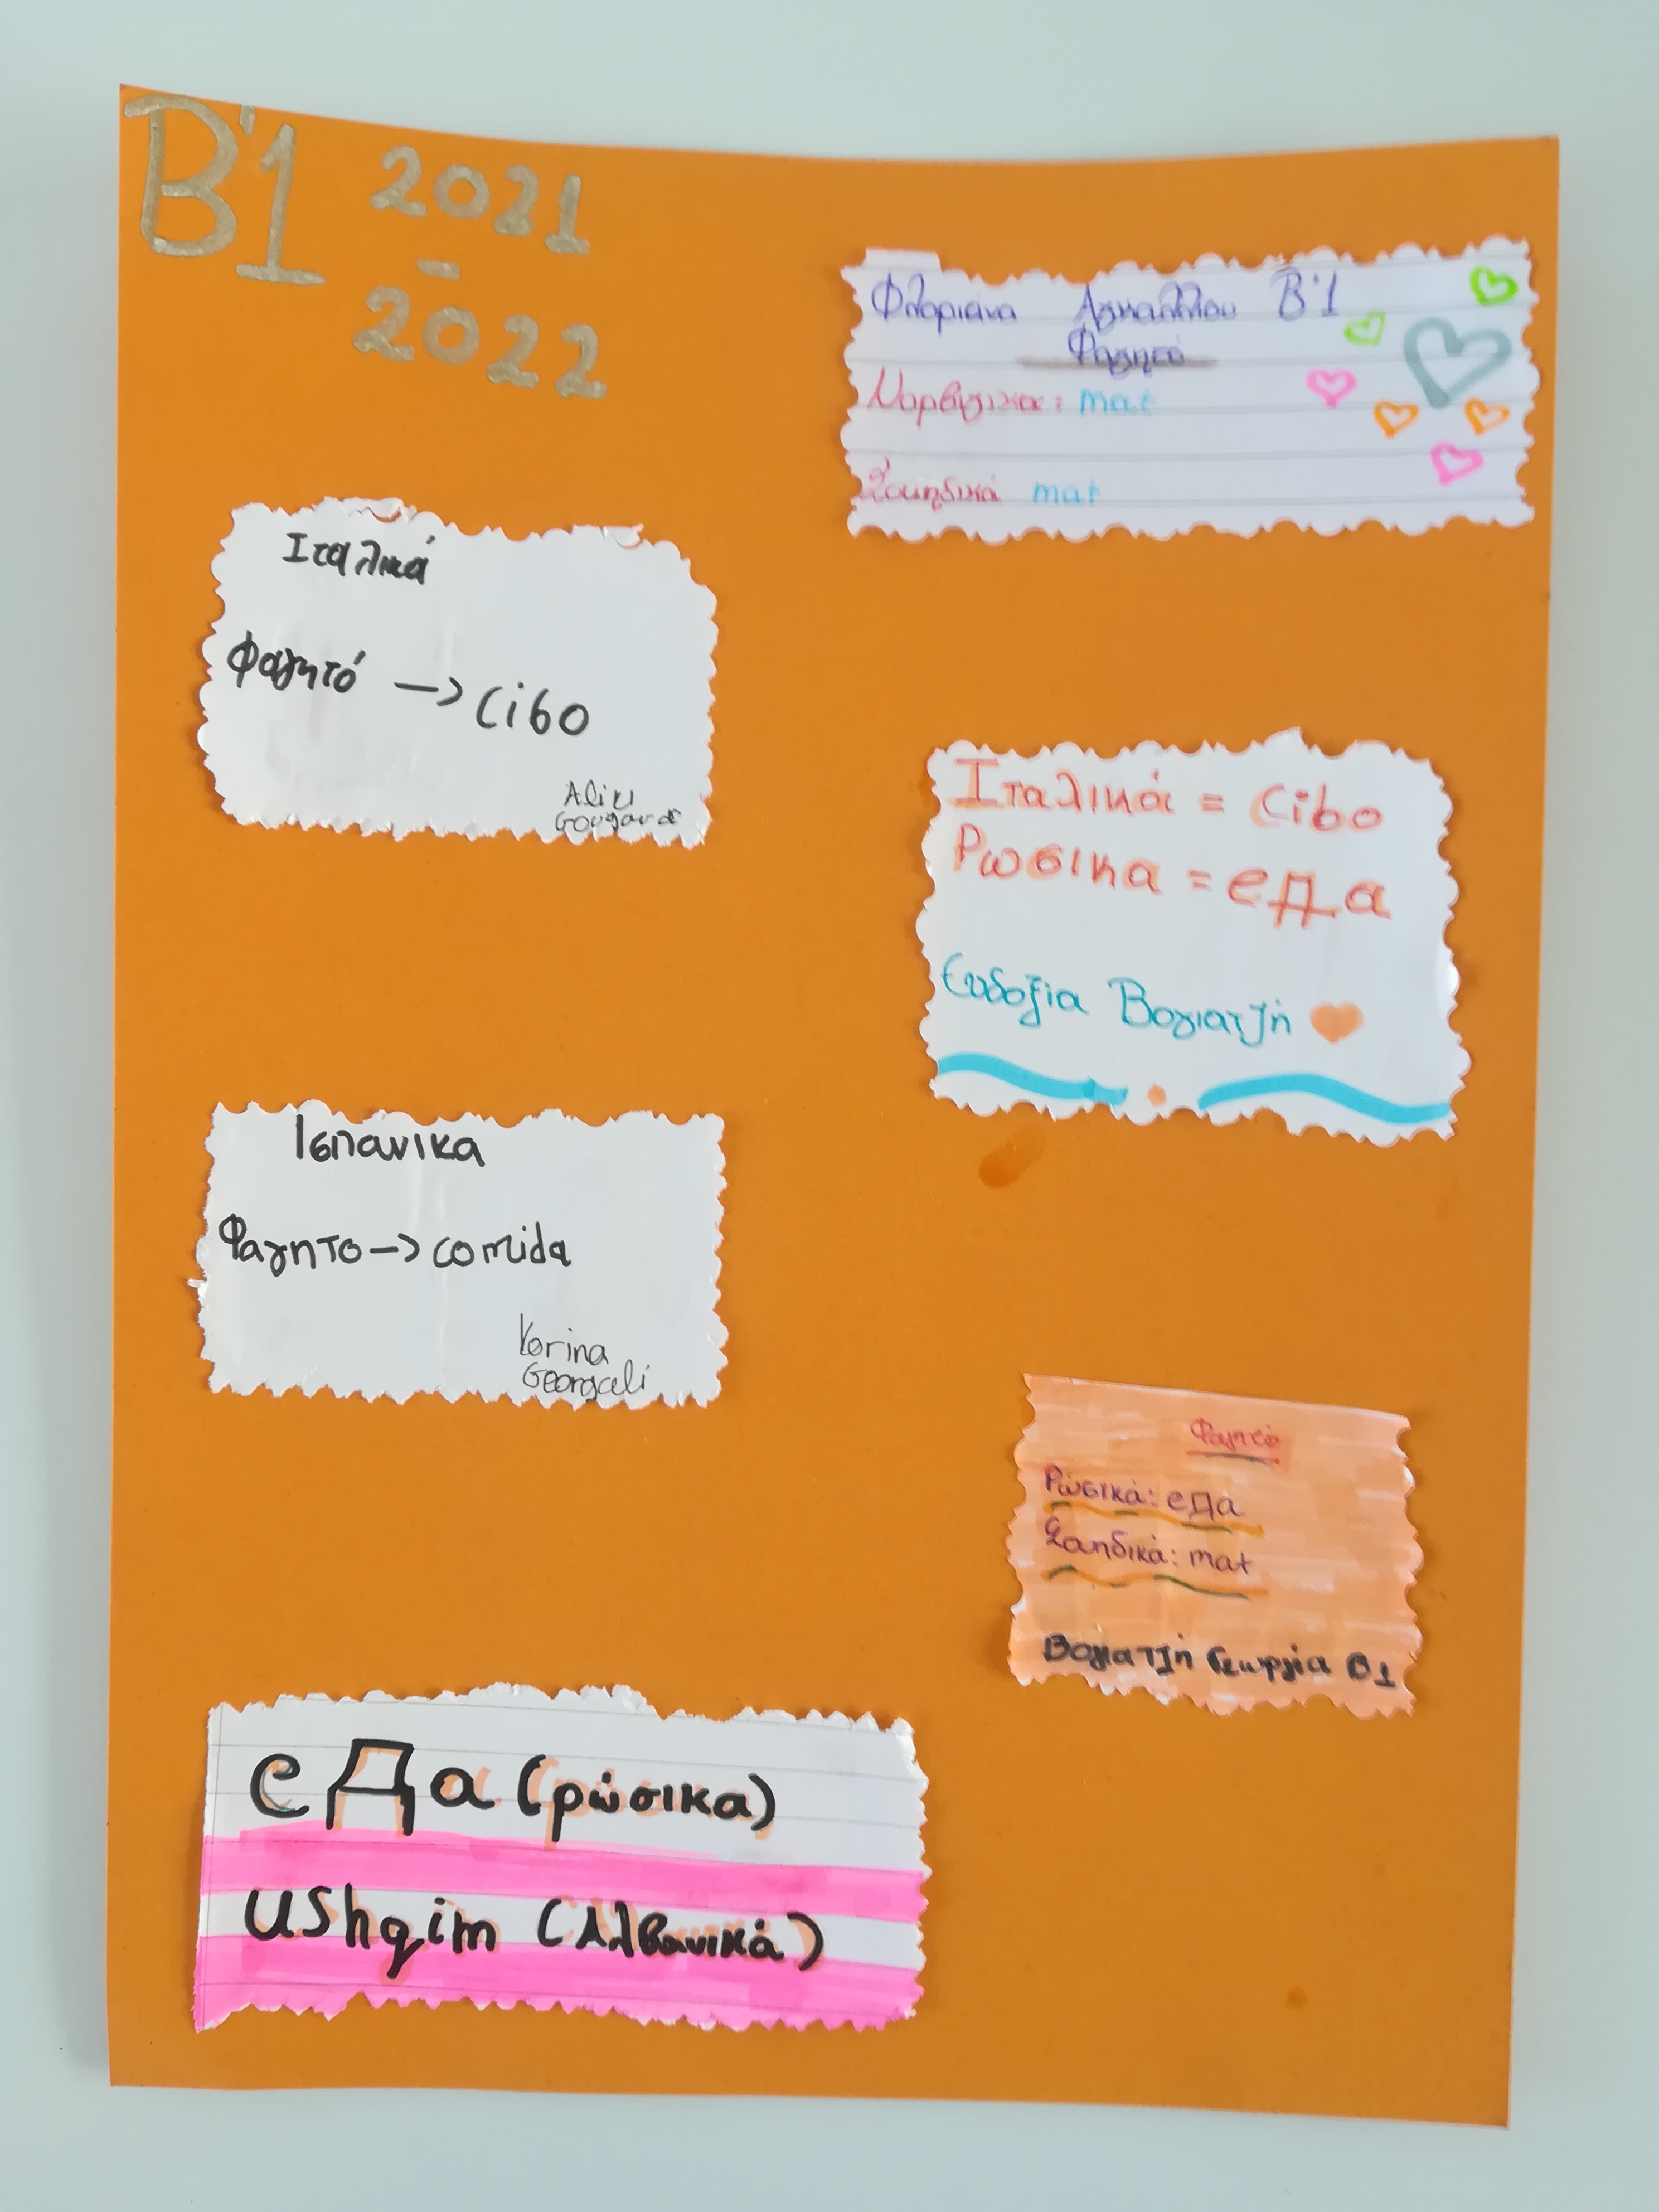 Β'1 2021
-
2022
Φλοριάνα Β'1
Φαγητό
Νορβηγικα: mat
Σουηδικά mat
Ιταλικά
Φαγητό -> Cibo
Aliki
Ιταλικά = Cibo
Ρωσικα = еДа
Ευδοξία Βογιατζή
Ισπανικα
Φαγητο -> comida
Korina
Georgali
Φαγητό
Ρώσικά: еДа
Σουηδικά: mat
Βογιατζή Γεωργία Β1
еДа (ρώσικα)
ushqim (Αλβανικά)